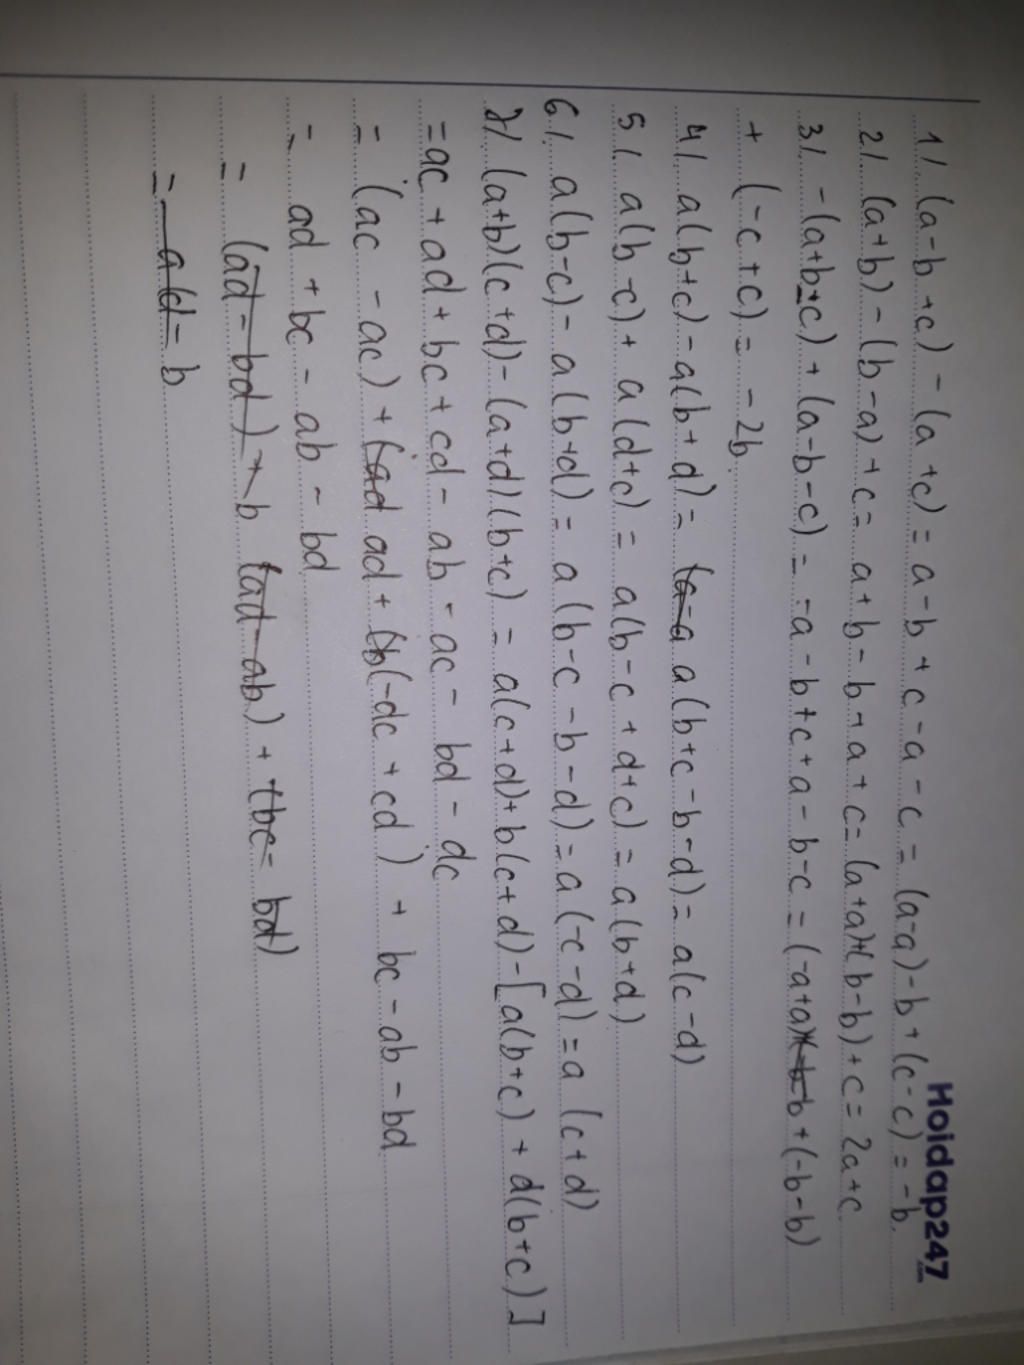 Hoidap247
.com
1/ (a-b+c) - (a+c) = a-b+c-a-c = (a-a)-b+(c-c) = -b.
2/ (a+b) - (b-a)+c = a+b-b+a+c = (a+a)+(b-b)+c = 2a+c
3/ -(a+b-c) + (a-b-c) = -a-b+c+a-b-c = (-a+a) + (-b-b)
+ (-c+c) = -2b.
4/ a(b+c) - a(b+d) = a(b+c-b-d) = a(c-d)
5/ a(b-c) + a(d+c) = a(b-c+d+c) = a(b+d)
6/ a(b-c) - a(b+d) = a(b-c-b-d) = a(-c-d) = a(c+d)
7/ (a+b)(c+d) - (a+d)(b+c) = a(c+d)+b(c+d)-[a(b+c)+d(b+c)]
= ac + ad + bc + cd - ab - ac - bd - dc
= (ac - ac) + ad + (-dc + cd) + bc - ab - bd
= ad + bc - ab - bd
= (ad - bd) + b (ad - ab) + tbc = bd)
= a(d - b